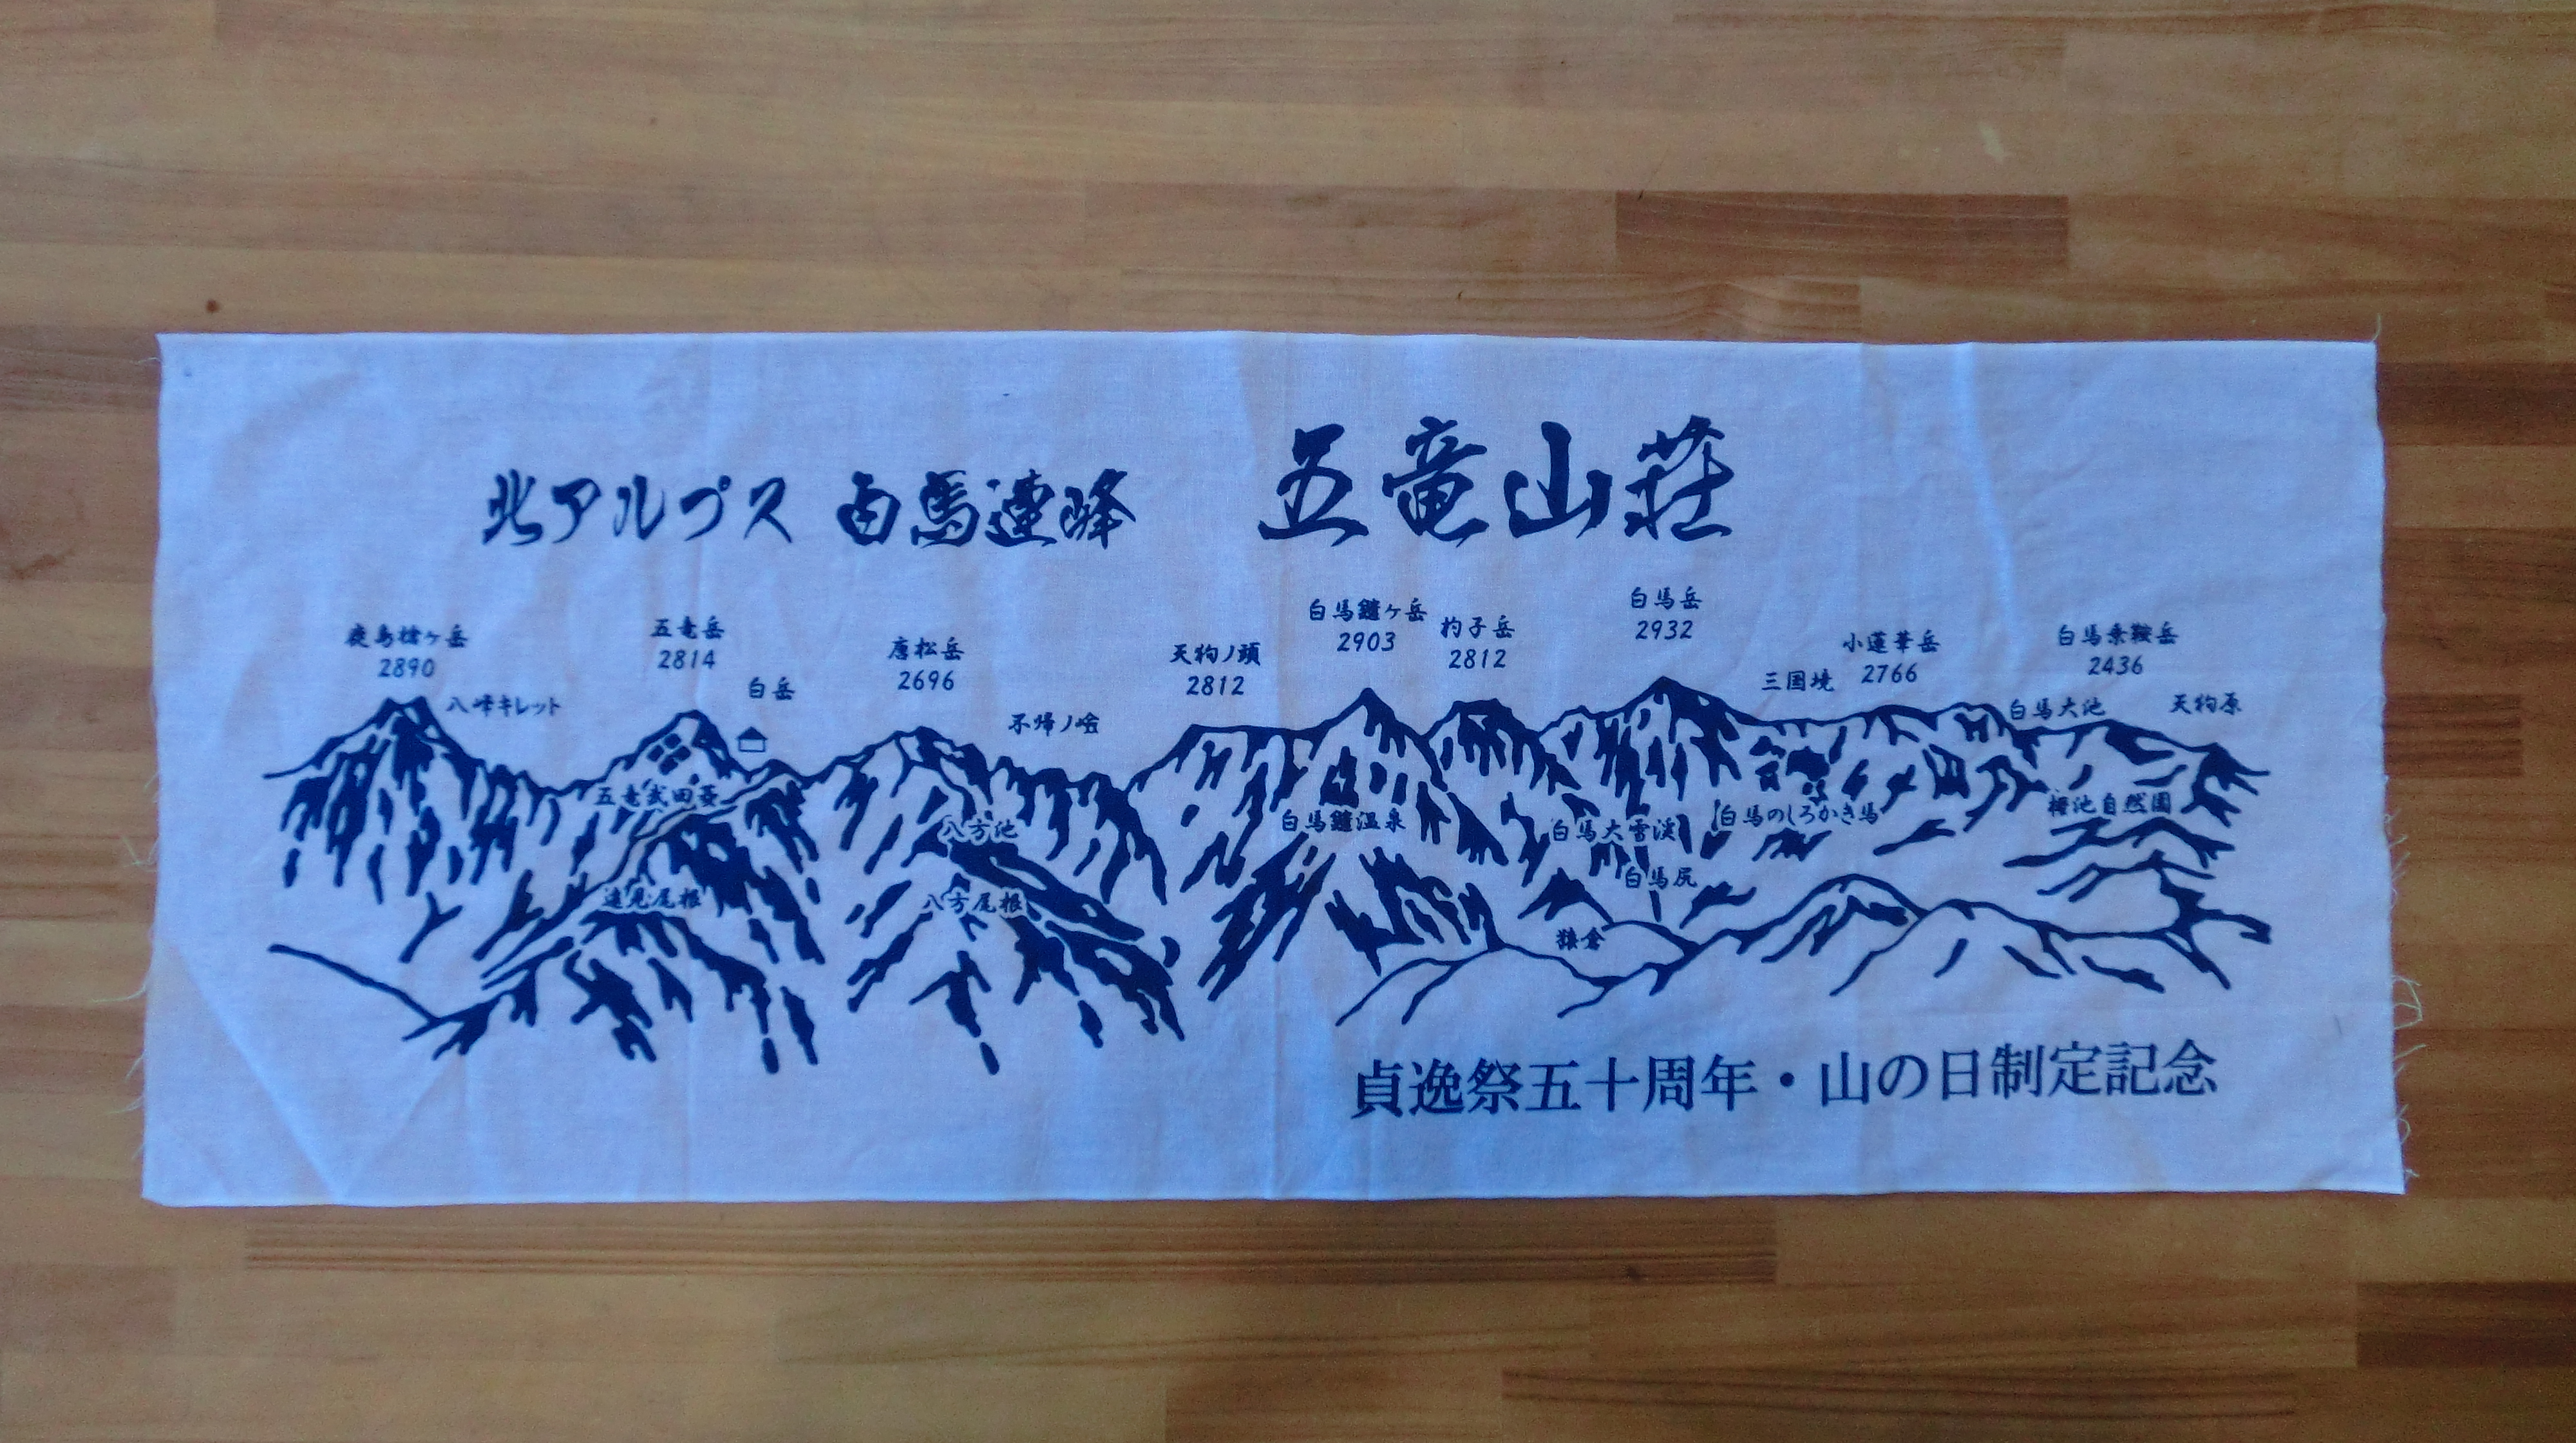 北アルプス 白馬連峰
五竜山荘
鹿島槍ヶ岳
2890
八峰キレット
五竜岳
2814
白岳
唐松岳
2696
不帰ノ嶮
天狗ノ頭
2812
白馬鑓ヶ岳
2903
杓子岳
2812
白馬岳
2932
三国境
小蓮華岳
2766
白馬大池
白馬乗鞍岳
2436
天狗原
五竜武田菱
遠見尾根
八方池
八方尾根
白馬鑓温泉
白馬大雪渓
白馬尻
猿倉
白馬のしろかき馬
栂池自然園
貞逸祭五十周年・山の日制定記念